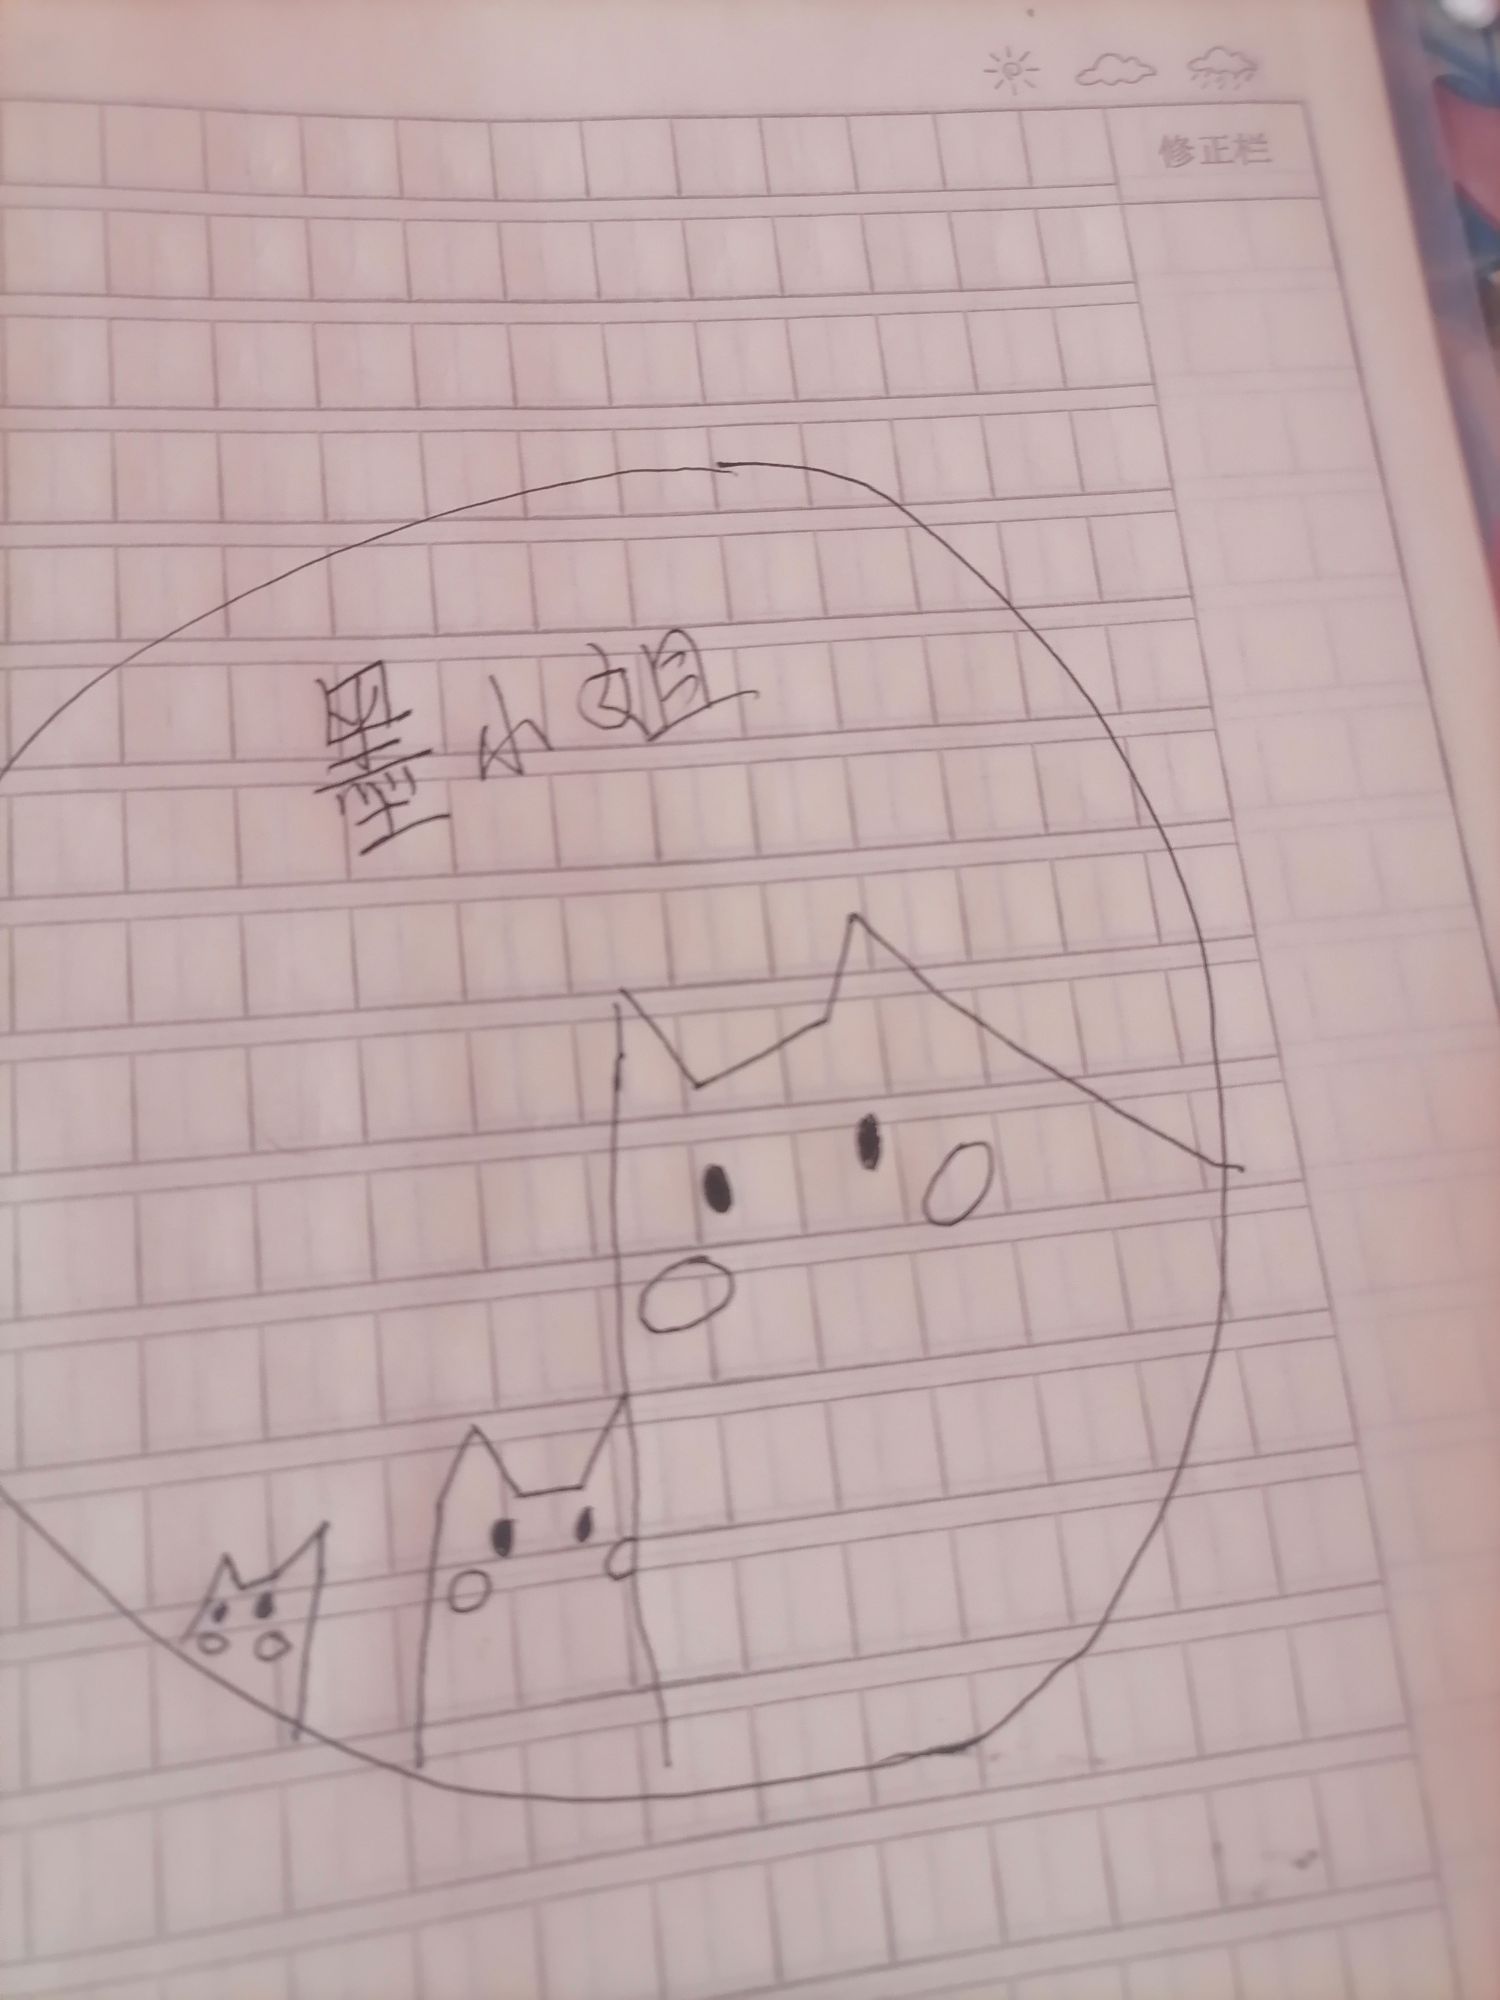 修正栏
墨小姐